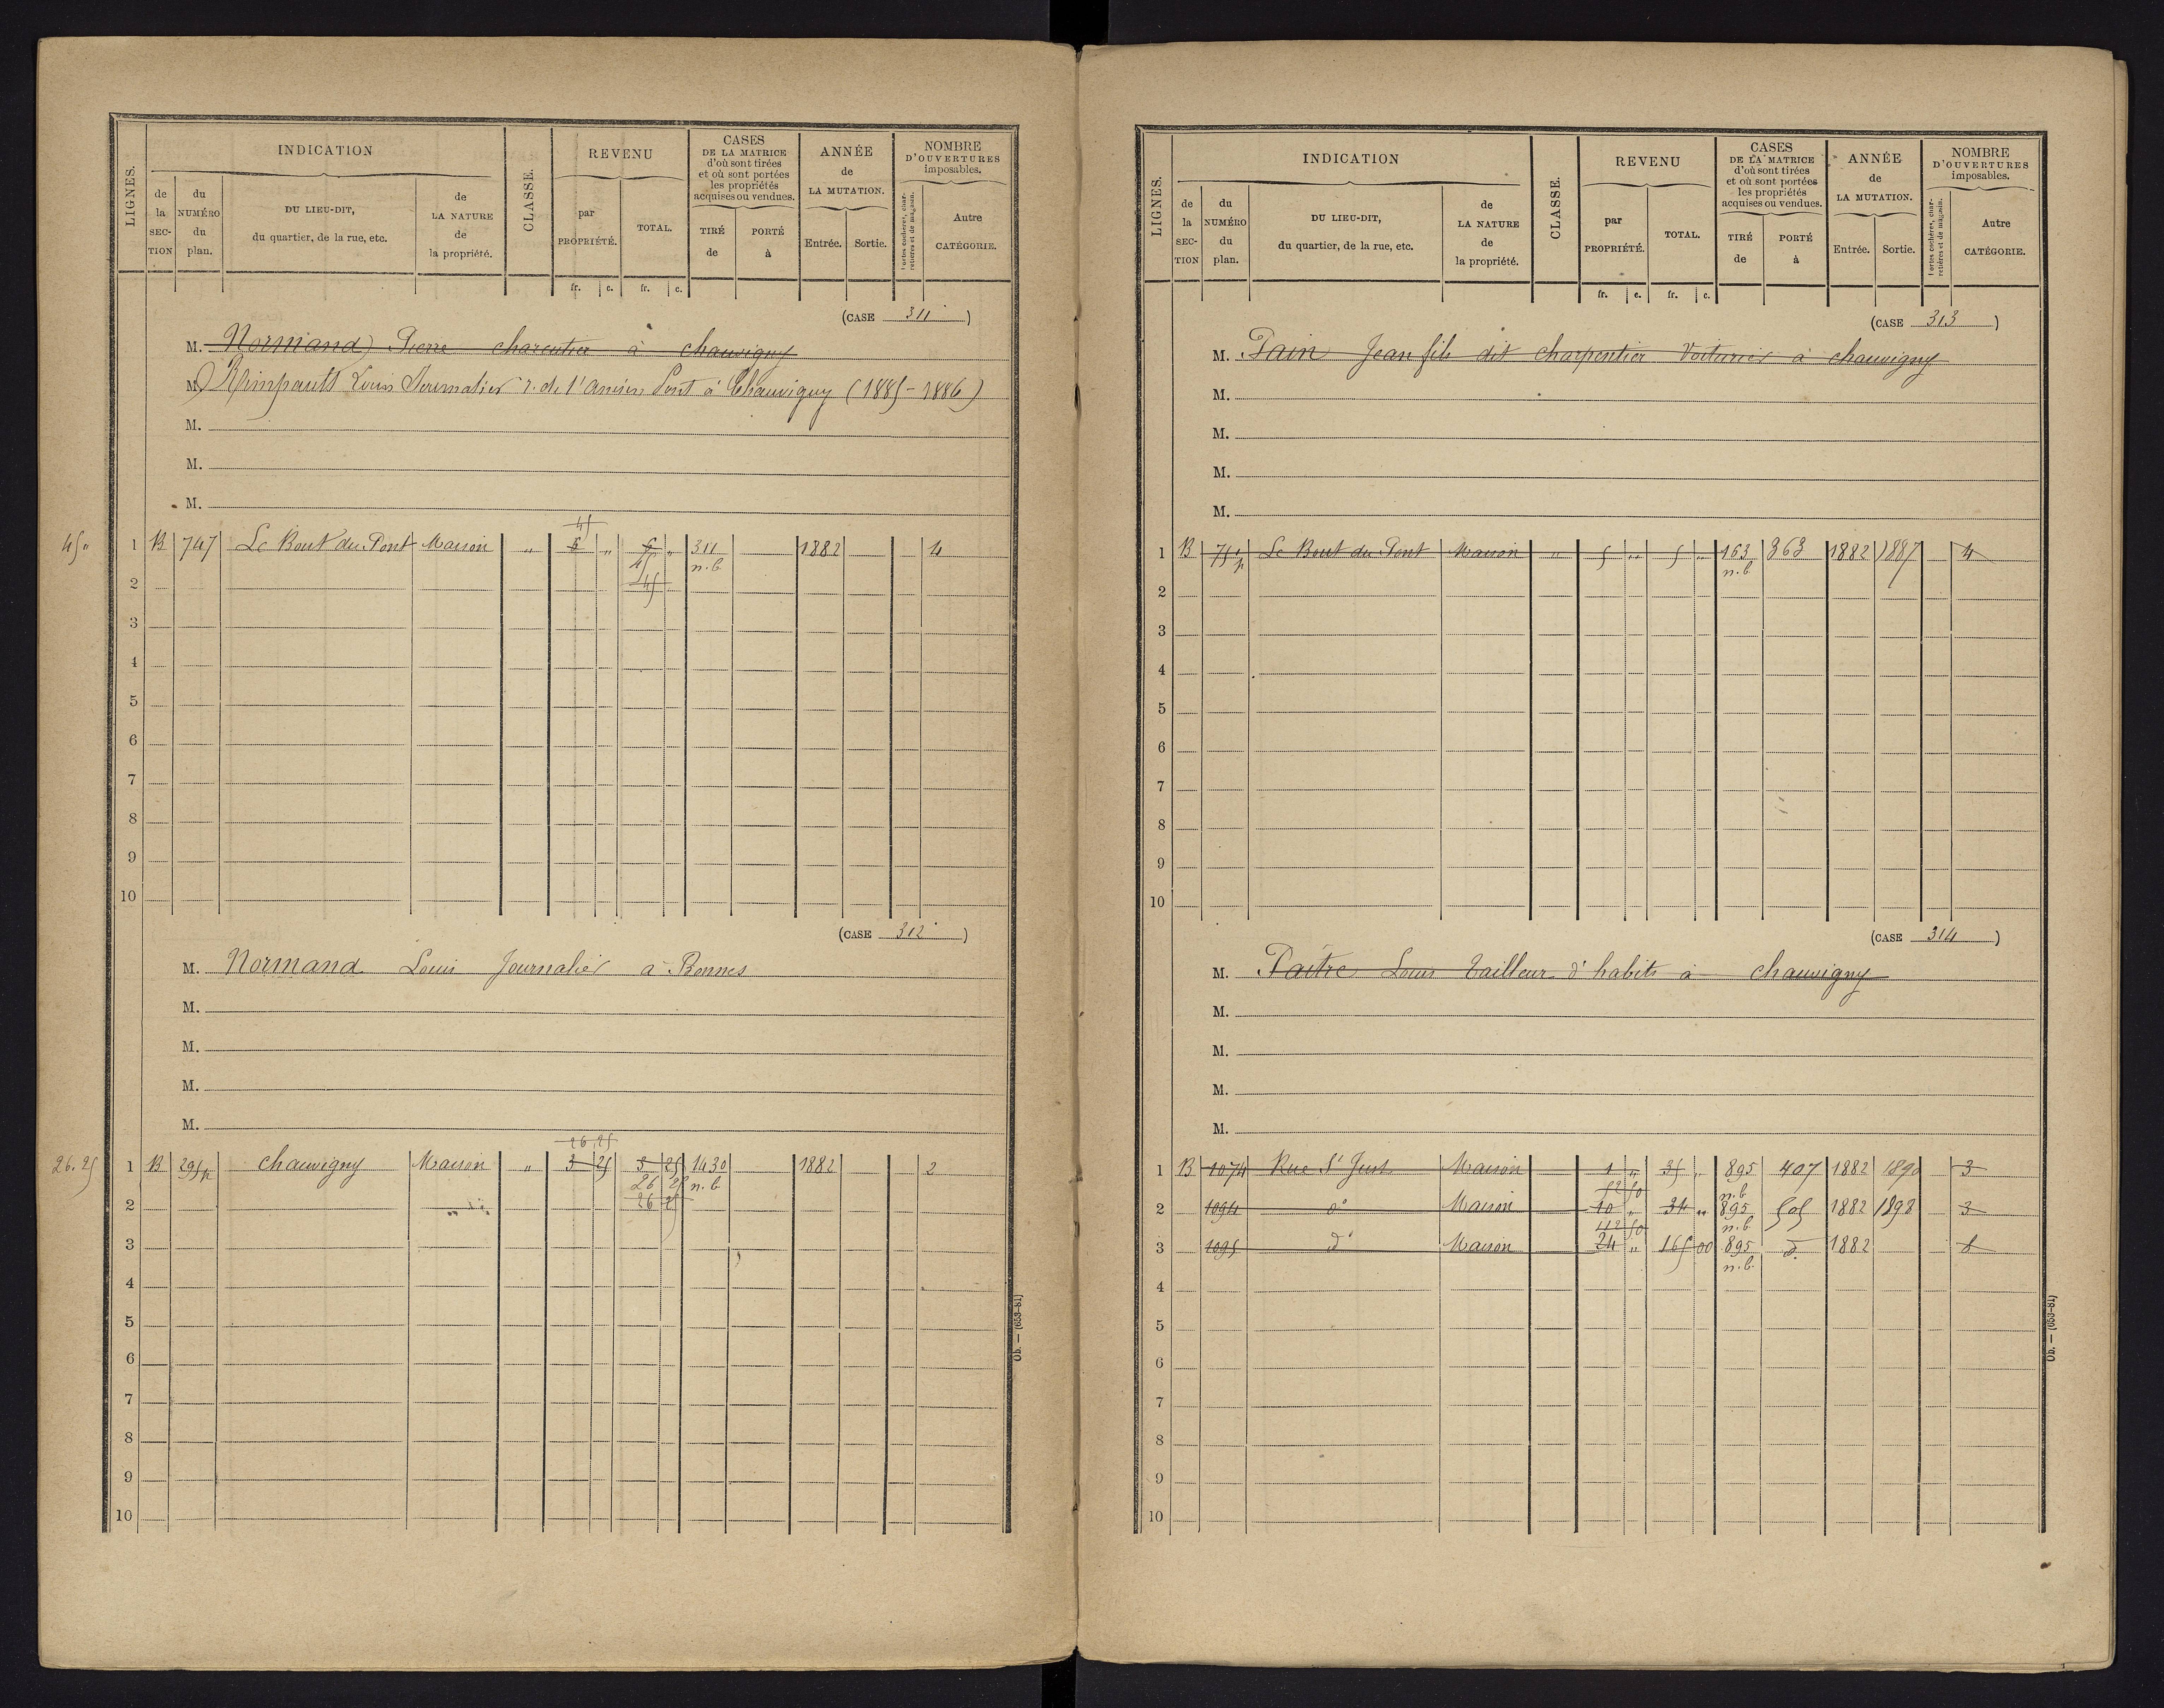 LIGNES.
INDICATION
de la SECTION
du NUMÉRO du plan.
DU LIEU-DIT, du quartier, de la rue, etc.
de LA NATURE de la propriété.
CLASSE.
REVENU
par PROPRIÉTÉ.
TOTAL.
fr. c. fr. c.
CASES DE LA MATRICE d'où sont tirées et où sont portées les propriétés acquises ou vendues.
TIRÉ de
PORTÉ à
ANNÉE de LA MUTATION.
Entrée. Sortie.
NOMBRE D'OUVERTURES imposables.
Portes cochères, charretières et de magasin.
Autre CATÉGORIE.
(CASE 311)
M. Normand Pierre charentier à chauvigny
M. Rimpault Louis Journalier r. de l'ancien Pont à Chauvigny (1885-1886)
M.
M.
M.
45
45 " 1 B 747 Le Bout du Pont Maison " 6 " 6 " 311 1882 4
45 n.b
2 45
3
4
5
6
7
8
9
10
(CASE 312)
M. Normand Louis Journalier à Bonnes
M.
M.
M.
M.
26 25
26.25 1 B 295p chauvigny Maison " 3 25 3 25 1430 1882 2
26 25 n.b
2 26 25
3
4
5
6
7
8
9
10
Ob. — (653-81)
LIGNES.
INDICATION
de la SECTION
du NUMÉRO du plan.
DU LIEU-DIT, du quartier, de la rue, etc.
de LA NATURE de la propriété.
CLASSE.
REVENU
par PROPRIÉTÉ.
TOTAL.
fr. c. fr. c.
CASES DE LA MATRICE d'où sont tirées et où sont portées les propriétés acquises ou vendues.
TIRÉ de
PORTÉ à
ANNÉE de LA MUTATION.
Entrée. Sortie.
NOMBRE D'OUVERTURES imposables.
Portes cochères, charretières et de magasin.
Autre CATÉGORIE.
(CASE 313)
M. Pain Jean fils dit charpentier Voiturier à chauvigny
M.
M.
M.
M.
1 B Le Bout du Pont Maison " 5 " 5 " 163 363 1882 1887 4
n.b
2
3
4
5
6
7
8
9
10
(CASE 314)
M. Paitre Louis tailleur d'habits à chauvigny
M.
M.
M.
M.
1 B 1074 Rue St Just Maison 1 " 35 " 895 407 1882 1890 3
52 50 n.b
2 1094 do Maison 10 " 34 " 895 505 1882 1898 3
112 50 n.b
3 1095 do Maison 24 " 165 00 895 d. 1882 8
n.b.
4
5
6
7
8
9
10
Ob. — (653-81)